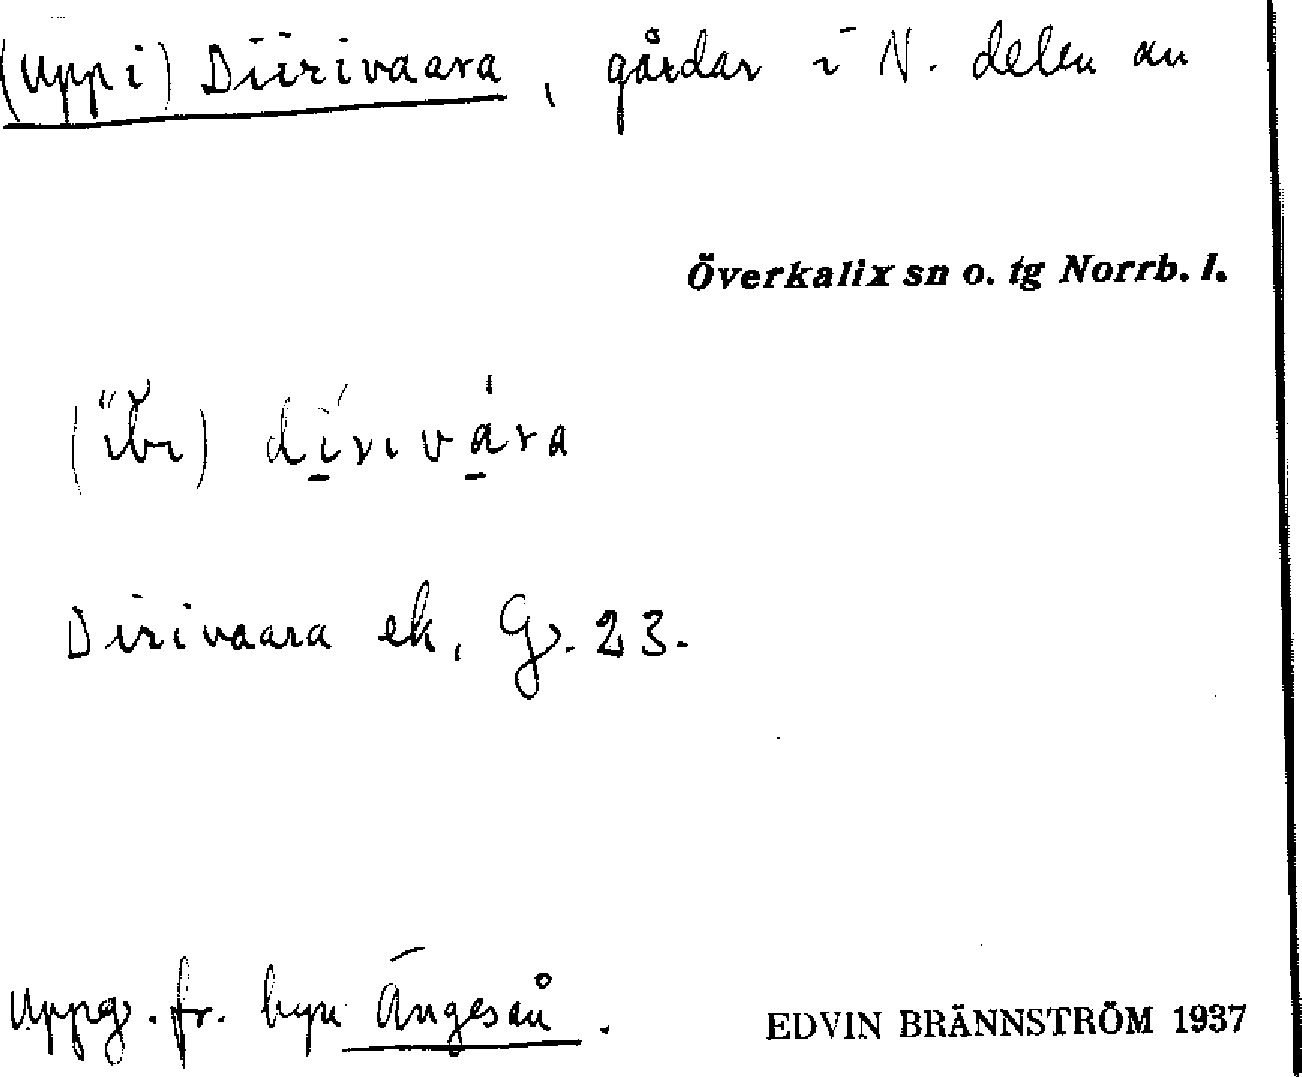 (Uppi) Diirivaara, gårdar i N. delen av
Överkalix sn o. tg Norrb. l.
Dirivaara ek, G. 23.
Uppg. fr. byn Ängesån.
EDVIN BRÄNNSTRÖM 1937